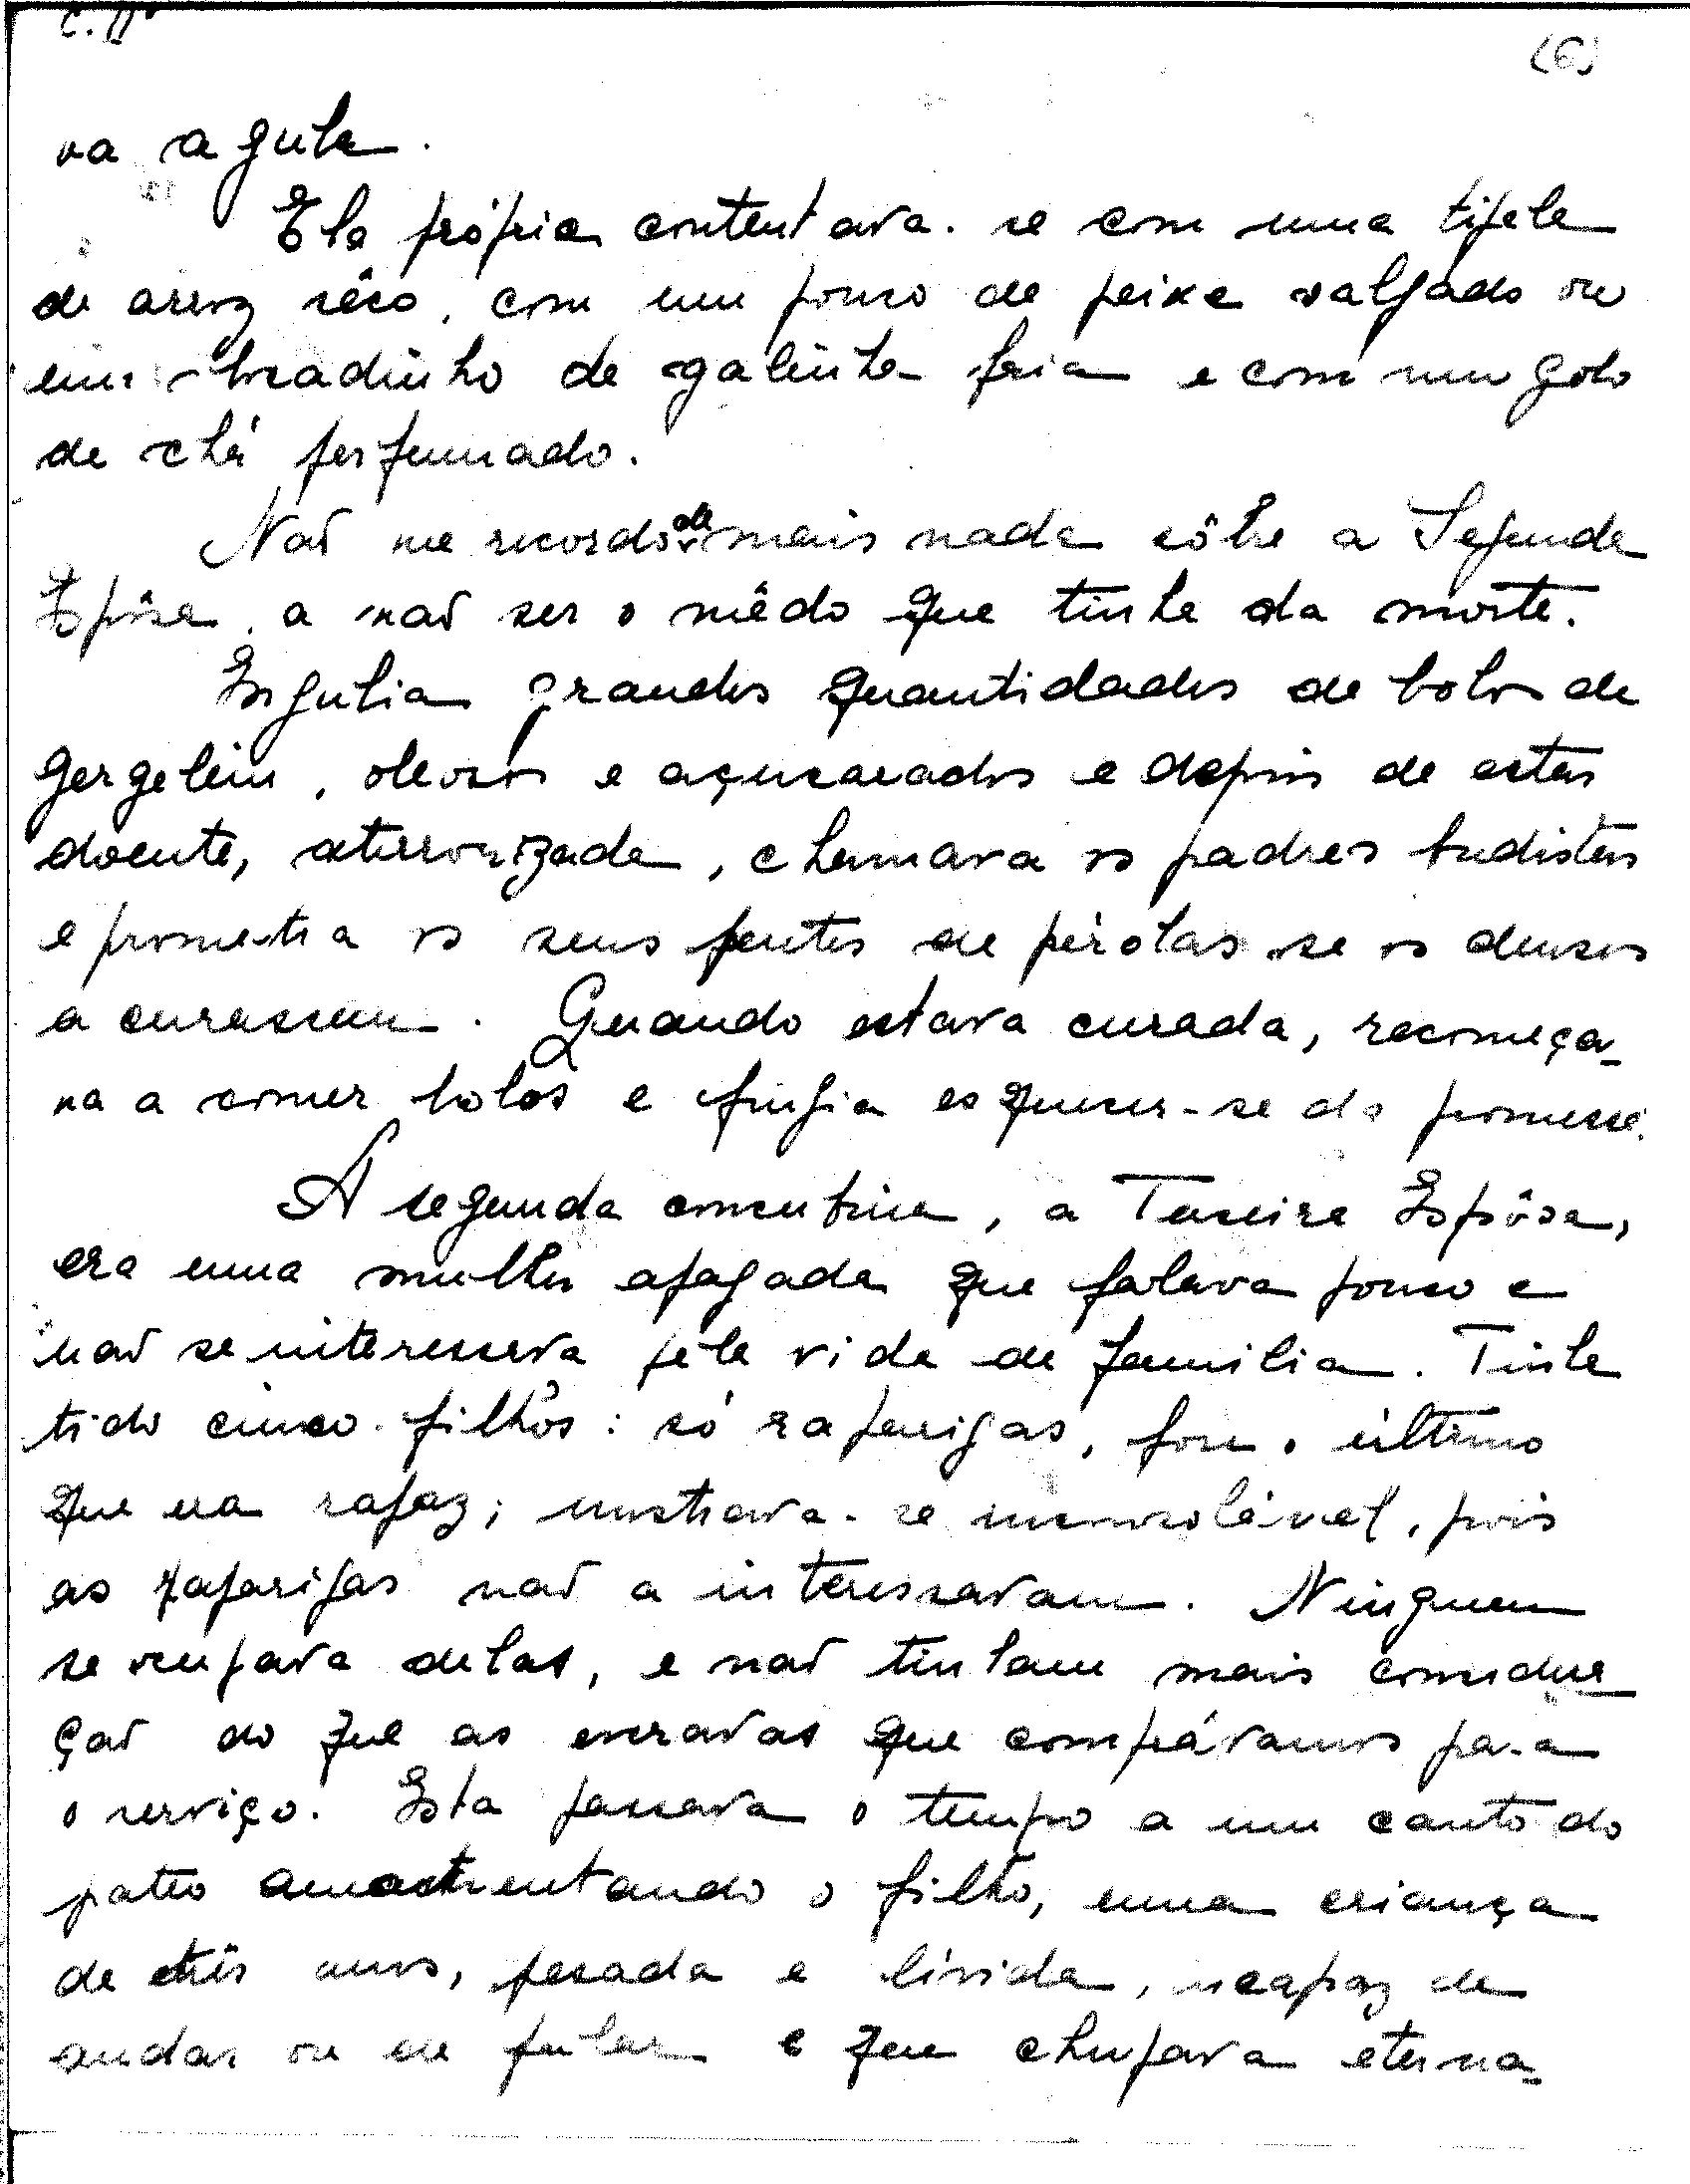 (6)
va a gula.
Ela própria contentava-se com uma tijela
de arroz sêco, com um pouco de peixe salgado ou
um bocadinho de galinha fria e com um golo
de chá perfumado.
Naõ me recordo de mais nada sôbre a Segunda
Espôsa, a naõ ser o mêdo que tinha da morte.
Engulia grandes quantidades de bolos de
gergelim, oleosos e açucarados e depois de estar
doente, aterrorizada, chamava os padres budistas
e prometia os seus pentes de pérolas se os deuses
a curassem. Quando estava curada, recomeça-
va a comer bolos e fingia esquecer-se da promessa.
A segunda concubina, a Terceira Espôsa,
era uma mulher apagada que falava pouco e
naõ se interessava pela vida de familia. Tinha
tido cinco filhos: só raparigas, fora o último
que era rapaz; mostrava-se inconsolável, pois
as raparigas naõ a interessavam. Ninguem
se ocupava delas, e naõ tinham mais considera-
çaõ do que as escravas que comprávamos para
o serviço. Esta passava o tempo a um canto do
patio amamentando o filho, uma criança
de três anos, pesada e lívida, incapaz de
andar ou de falar e que chupava eterna-